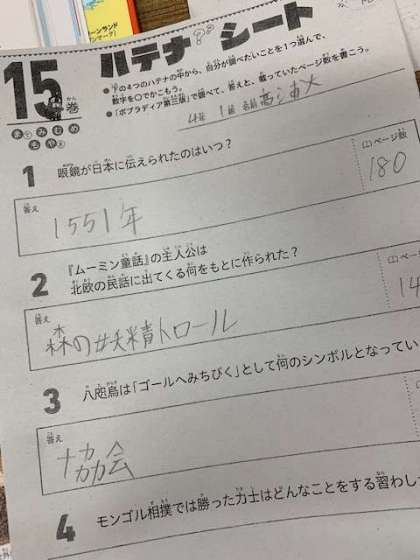 15巻
ハテナ?? シート
まみむめ
もやゐ
●下の4つのハテナの中から、自分が調べたいことを1つ選んで、
数字を○でかこもう。
●「ポプラディア第三版」で調べて、答えと、載っていたページ数を書こう。
4年 1組 名前
1 眼鏡が日本に伝えられたのはいつ?
答え 1551年
ページ数 180
2 『ムーミン童話』の主人公は
北欧の民話に出てくる何をもとに作られた?
答え 森の妖精トロール
ページ数 14
3 八咫烏は「ゴールへみちびく」として何のシンボルとなってい
答え 協会
4 モンゴル相撲では勝った力士はどんなことをする習わし